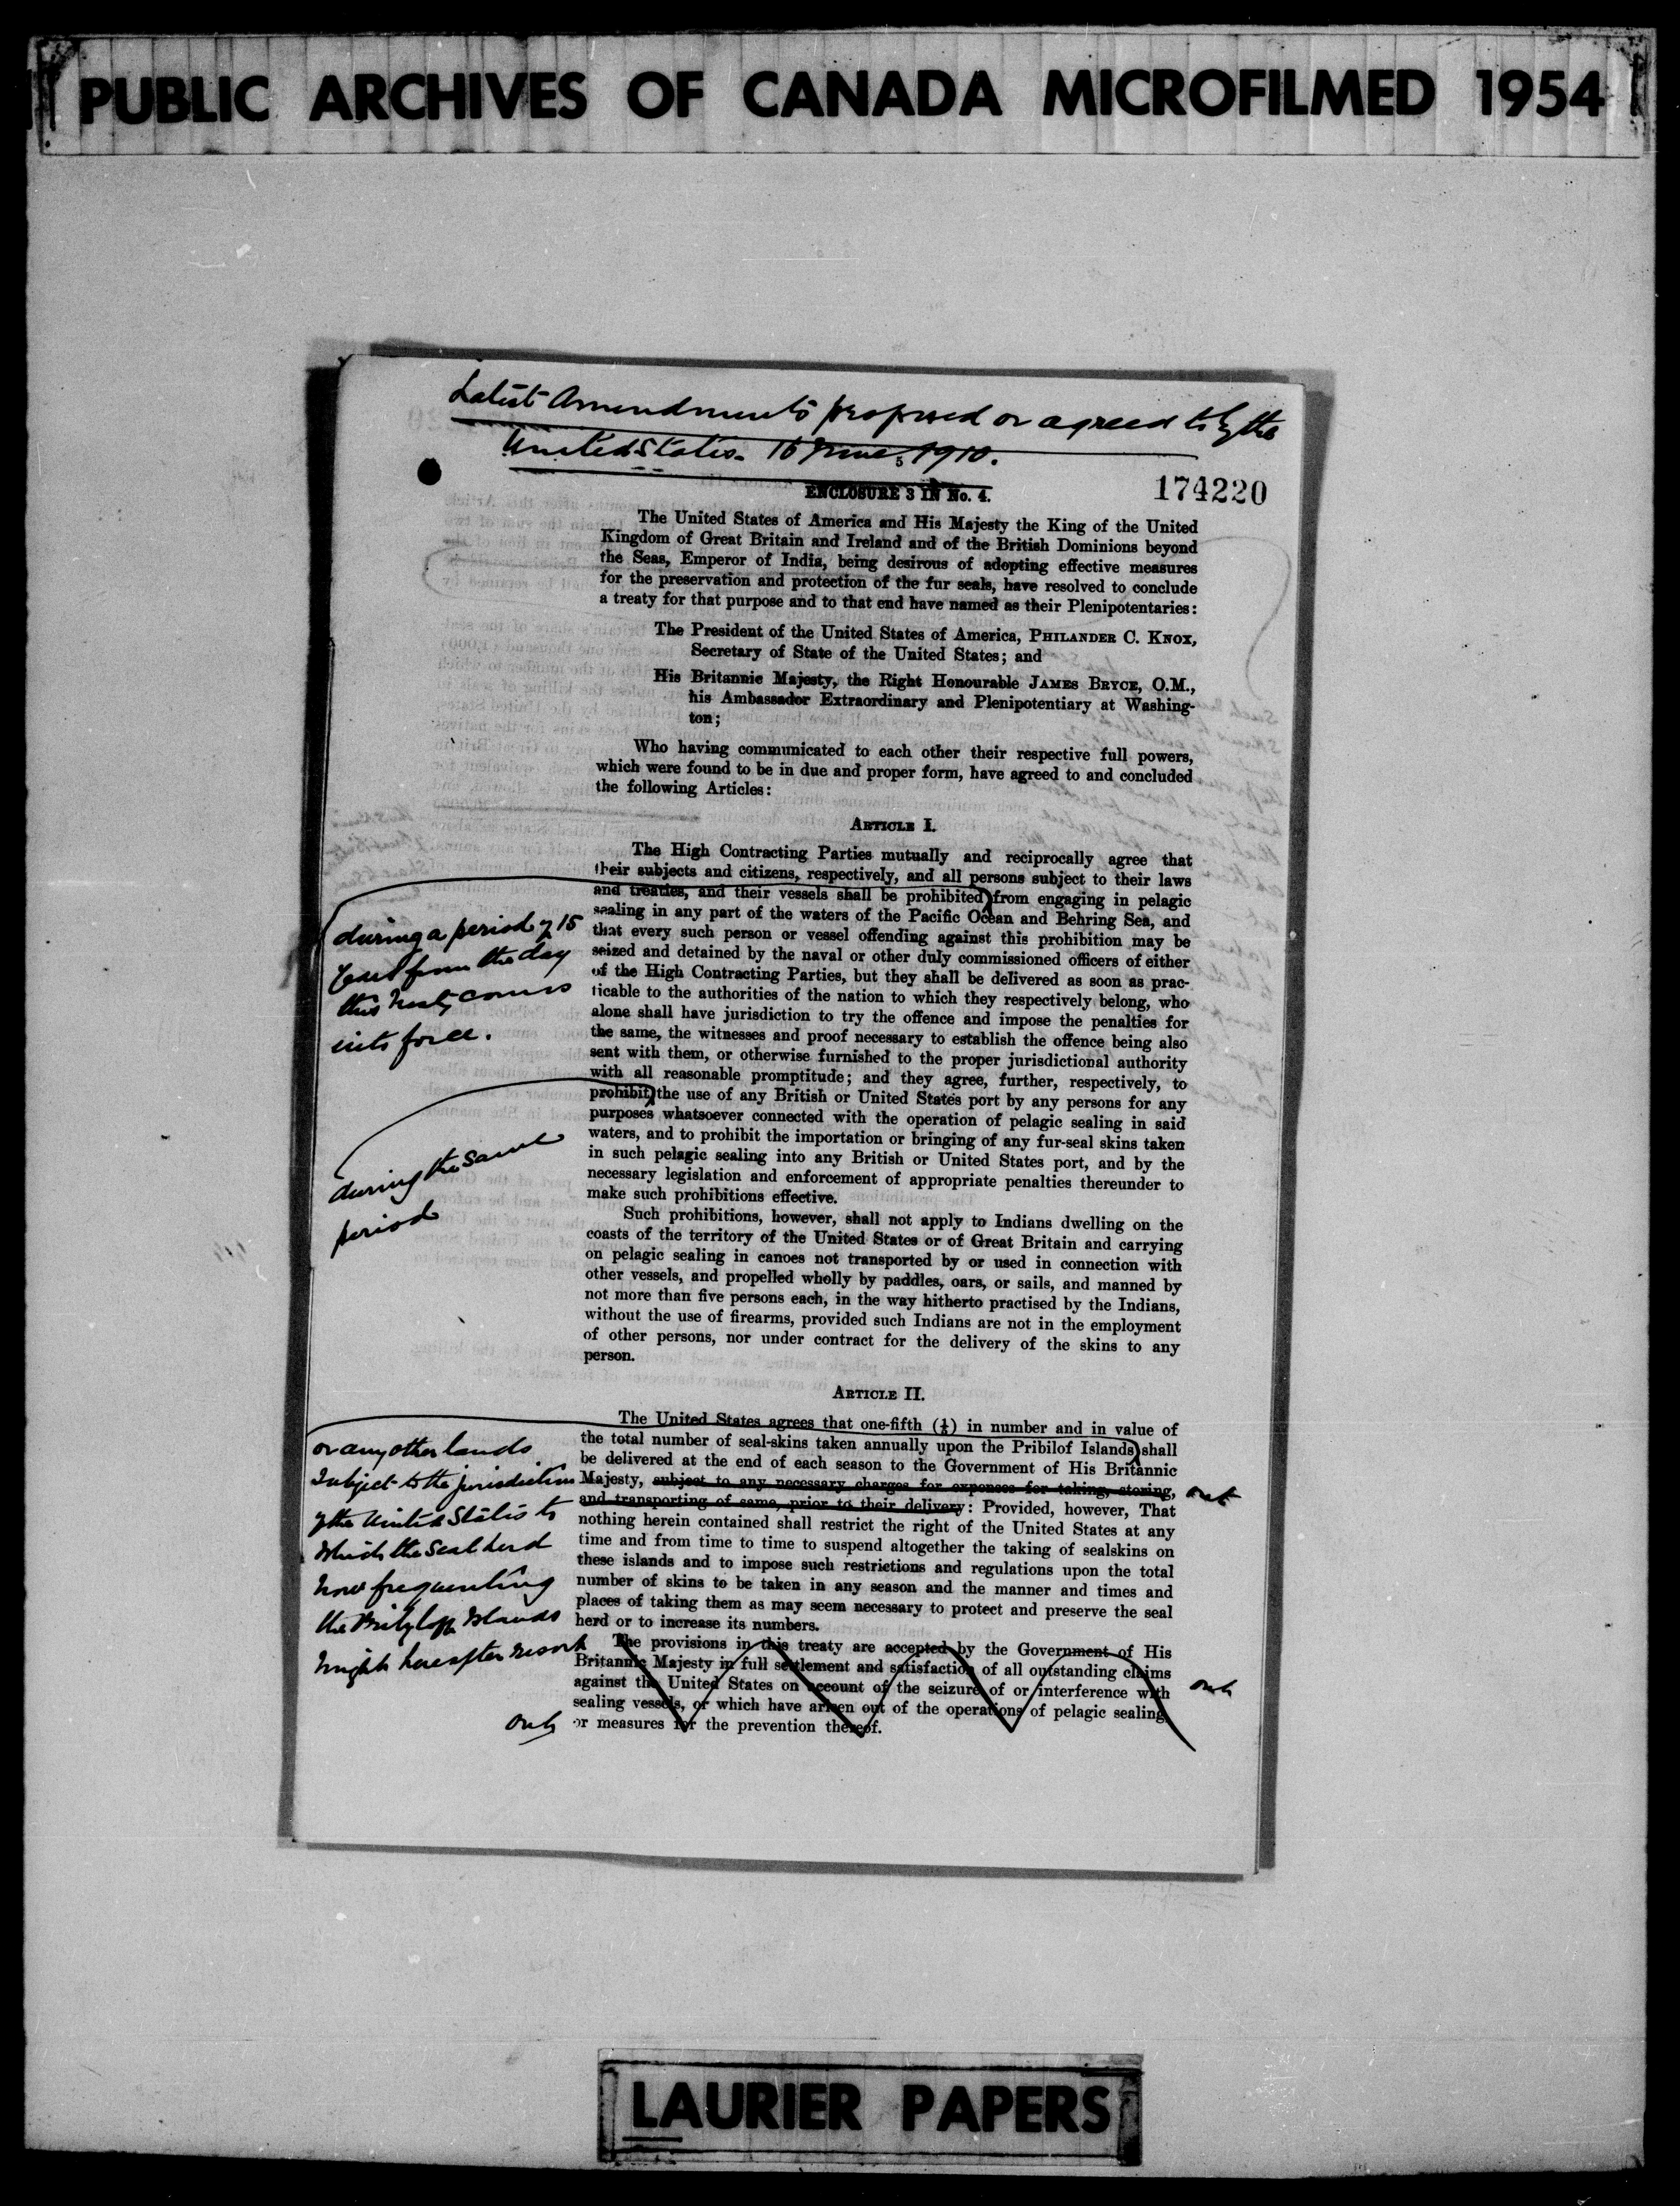 PUBLIC ARCHIVES OF CANADA MICROFILMED 1954
Latest Amendments proposed or agreed to by the
United States. 16 June, 1910.
5
174220
ENCLOSURE 3 IN No. 4.
The United States of America and His Majesty the King of the United
Kingdom of Great Britain and Ireland and of the British Dominions beyond
the Seas, Emperor of India, being desirous of adopting effective measures
for the preservation and protection of the fur seals, have resolved to conclude
a treaty for that purpose and to that end have named as their Plenipotentaries:
The President of the United States of America, PHILANDER C. KNOX,
Secretary of State of the United States; and
His Britannic Majesty, the Right Honourable JAMES BRYCE, O.M.,
his Ambassador Extraordinary and Plenipotentiary at Washing-
ton;
Who having communicated to each other their respective full powers,
which were found to be in due and proper form, have agreed to and concluded
the following Articles:
ARTICLE I.
The High Contracting Parties mutually and reciprocally agree that
their subjects and citizens, respectively, and all persons subject to their laws
and treaties, and their vessels shall be prohibited from engaging in pelagic
sealing in any part of the waters of the Pacific Ocean and Behring Sea, and
that every such person or vessel offending against this prohibition may be
seized and detained by the naval or other duly commissioned officers of either
of the High Contracting Parties, but they shall be delivered as soon as prac-
ticable to the authorities of the nation to which they respectively belong, who
alone shall have jurisdiction to try the offence and impose the penalties for
the same, the witnesses and proof necessary to establish the offence being also
sent with them, or otherwise furnished to the proper jurisdictional authority
with all reasonable promptitude; and they agree, further, respectively, to
prohibit the use of any British or United States port by any persons for any
purposes whatsoever connected with the operation of pelagic sealing in said
waters, and to prohibit the importation or bringing of any fur-seal skins taken
in such pelagic sealing into any British or United States port, and by the
necessary legislation and enforcement of appropriate penalties thereunder to
make such prohibitions effective.
during a period of 15
years from the day
this treaty comes
into force.
during the same
period
Such prohibitions, however, shall not apply to Indians dwelling on the
coasts of the territory of the United States or of Great Britain and carrying
on pelagic sealing in canoes not transported by or used in connection with
other vessels, and propelled wholly by paddles, oars, or sails, and manned by
not more than five persons each, in the way hitherto practised by the Indians,
without the use of firearms, provided such Indians are not in the employment
of other persons, nor under contract for the delivery of the skins to any
person.
ARTICLE II.
The United States agrees that one-fifth (⅕) in number and in value of
the total number of seal-skins taken annually upon the Pribilof Islands shall
be delivered at the end of each season to the Government of His Britannic
Majesty, subject to any necessary charges for expenses for taking, storing, out
and transporting of same, prior to their delivery: Provided, however, That
nothing herein contained shall restrict the right of the United States at any
time and from time to time to suspend altogether the taking of sealskins on
these islands and to impose such restrictions and regulations upon the total
number of skins to be taken in any season and the manner and times and
places of taking them as may seem necessary to protect and preserve the seal
herd or to increase its numbers.
or any other lands
subject to the jurisdiction
of the United States to
which the seal herd
now frequenting
the Pribyloff Islands
might hereafter resort
The provisions in this treaty are accepted by the Government of His
Britannic Majesty in full settlement and satisfaction of all outstanding claims
against the United States on account of the seizure of or interference with out
sealing vessels, or which have arisen out of the operations of pelagic sealing
out or measures for the prevention thereof.
LAURIER PAPERS